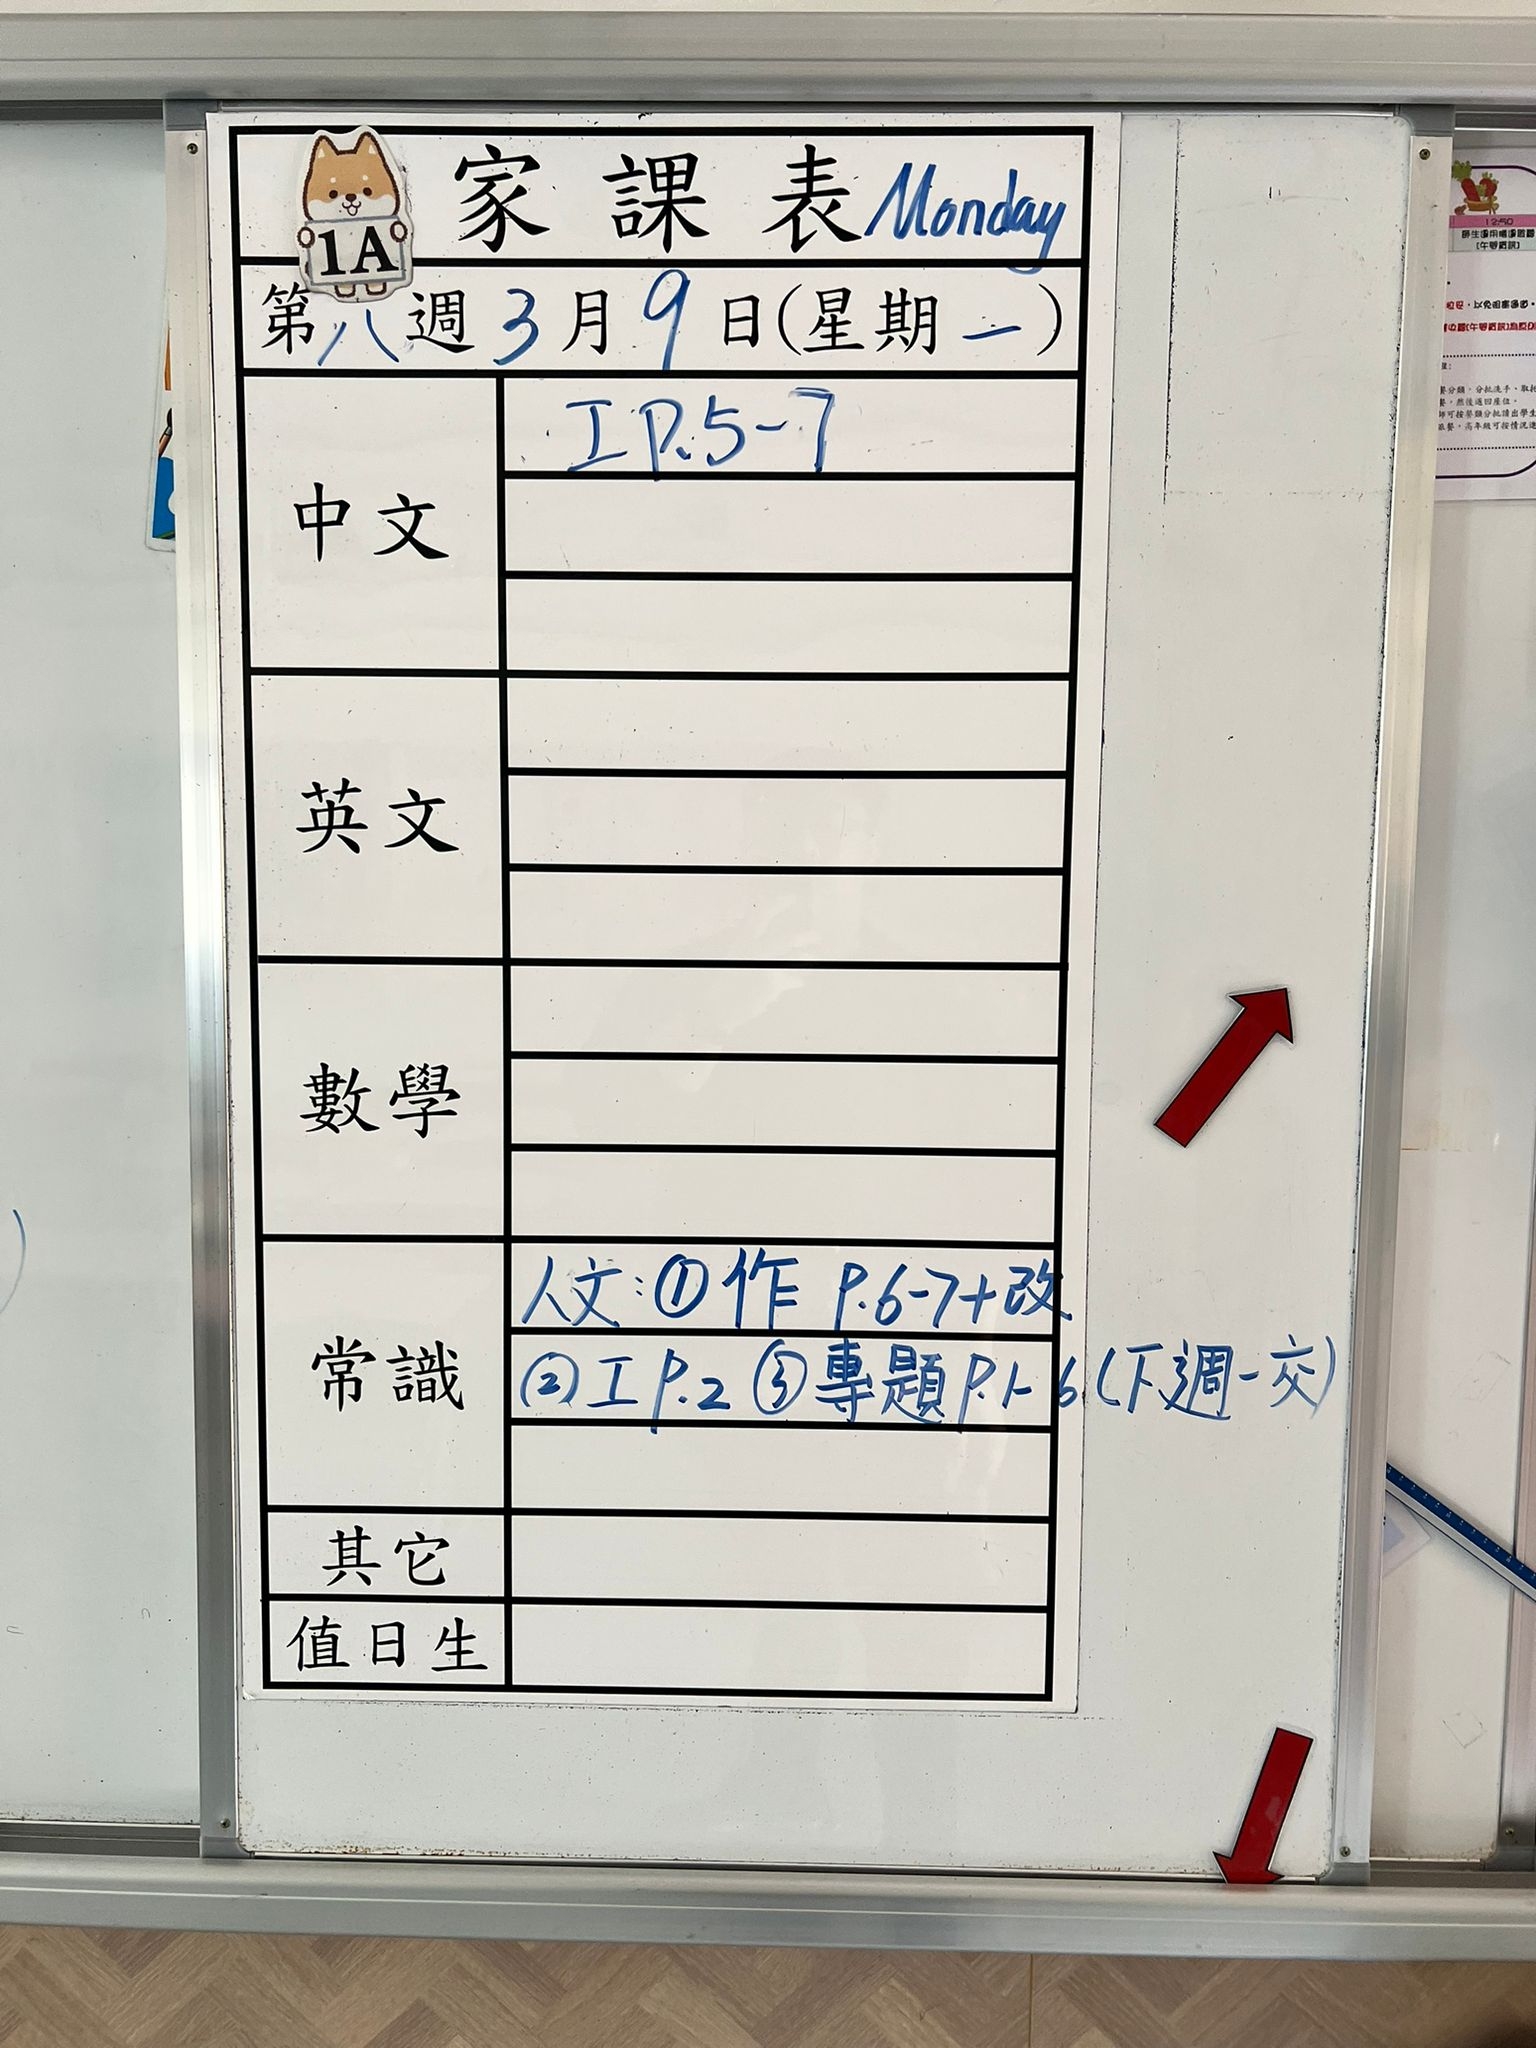 家課表 Monday
1A
第八週 3月9日(星期一)
中文
工 P.5-7
英文
數學
常識
人文:①作 P.6-7+改
②工 P.2 ③專題 P.1-6(下週一交)
其它
值日生
12:50